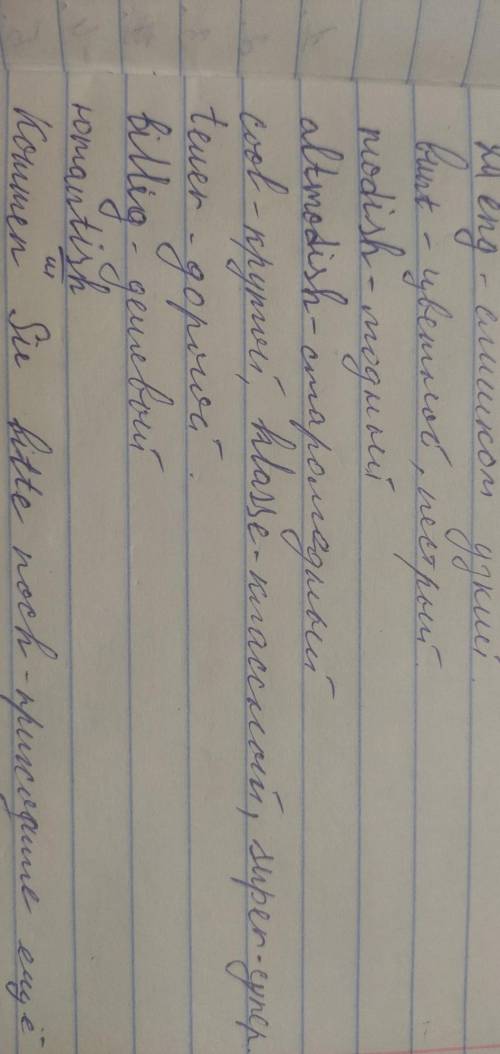 zu eng - слишком узкий.
bunt - цветной, пестрый.
modish - модный
altmodish - старомодный
cool - крутой, klasse - классный, super - супер.
teuer - дорогой.
billig - дешевый
romantish
ш
Kommen Sie bitte noch - приходите ещё